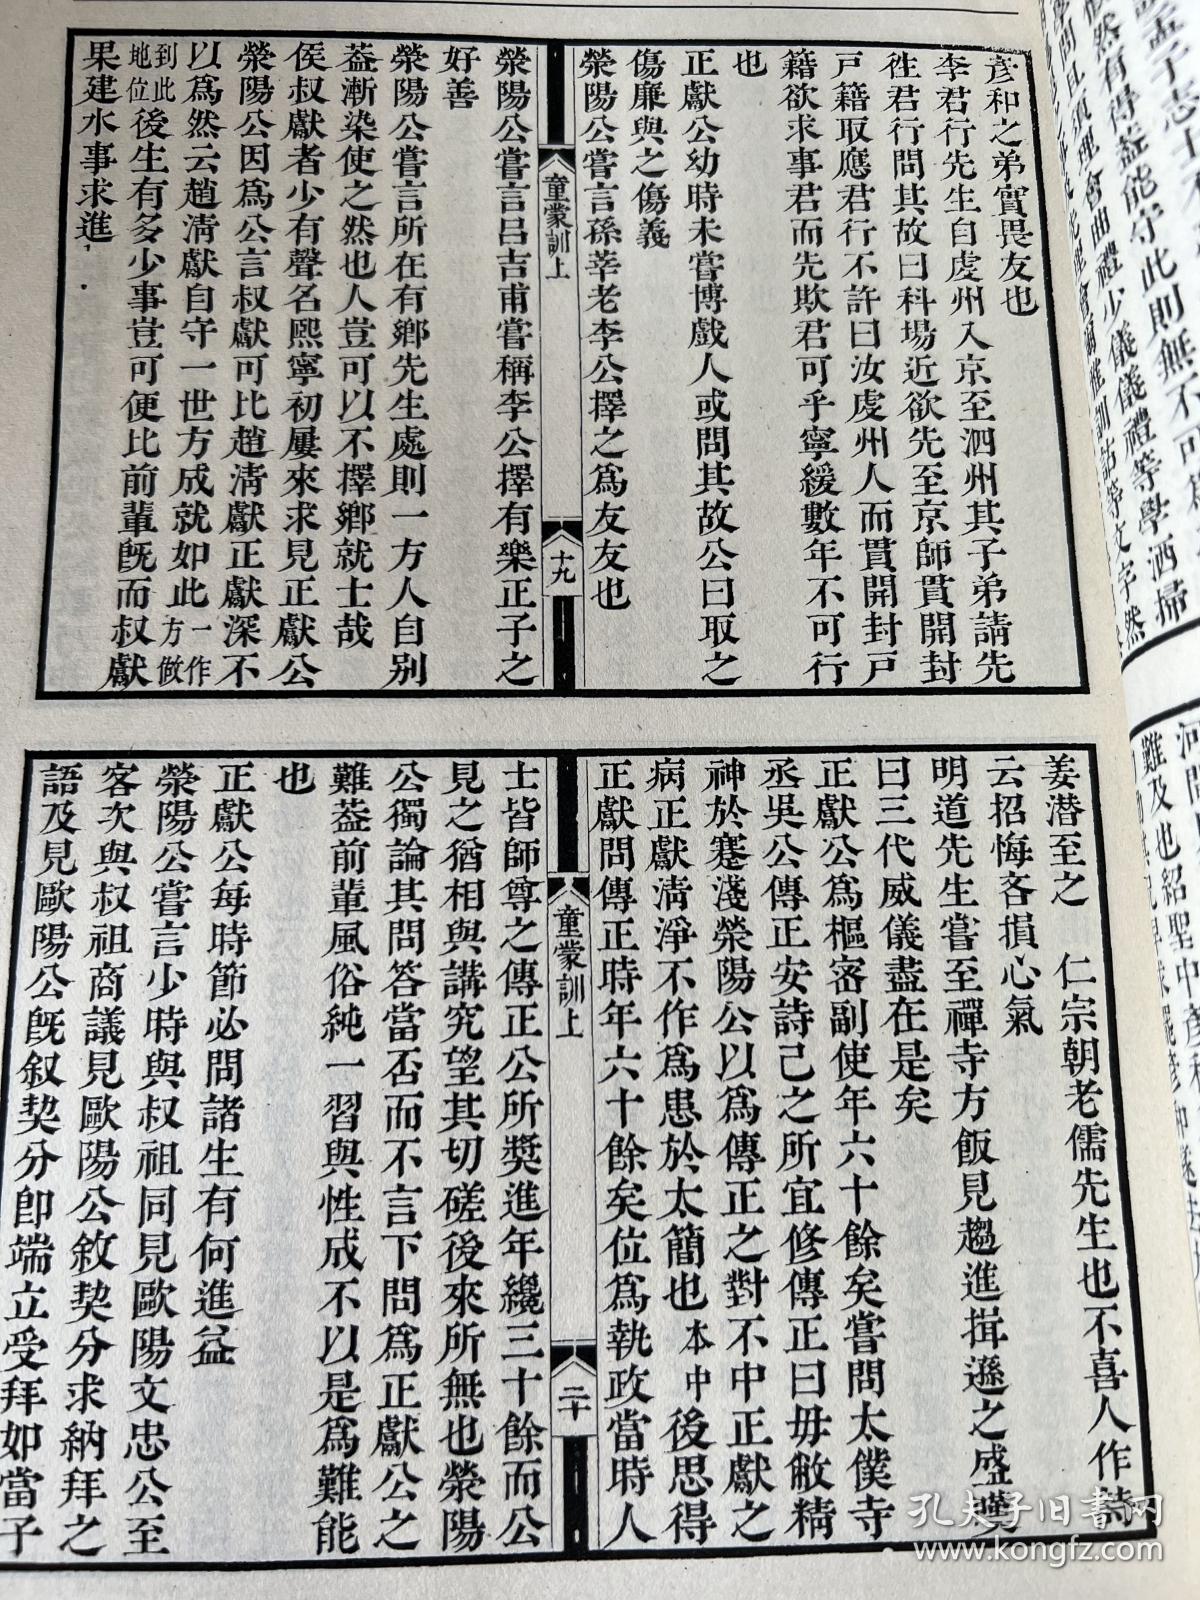 彥和之弟實畏友也
李君行先生自虔州入京至泗州其子弟請先
徃君行問其故曰科場近欲先至京師貫開封
戸籍取應君行不許曰汝虔州人而貫開封戸
籍欲求事君而先欺君可乎寧緩數年不可行
也
正獻公幼時未嘗博戲人或問其故公曰取之
傷廉與之傷義
滎陽公嘗言孫莘老李公擇之爲友友也
童蒙訓上
十九
滎陽公嘗言呂吉甫嘗稱李公擇有樂正子之
好善
滎陽公嘗言所在有鄉先生處則一方人自别
葢漸染使之然也人豈可以不擇鄉就士哉
侯叔獻者少有聲名熙寧初屢來求見正獻公
滎陽公因爲公言叔獻可比趙清獻正獻深不
以爲然云趙清獻自守一世方成就如此一作方做
到此地位後生有多少事豈可便比前輩旣而叔獻
果建水事求進
姜潛至之 仁宗朝老儒先生也不喜人作詩
云招悔吝損心氣
明道先生嘗至禪寺方飯見趨進揖遜之盛嘆
曰三代威儀盡在是矣
正獻公爲樞密副使年六十餘矣嘗問太僕寺
丞吳公傳正安詩己之所宜修傳正曰毋敝精
神於蹇淺滎陽公以爲傳正之對不中正獻之
病正獻清淨不作爲患於太簡也本中後思得
正獻問傳正時年六十餘矣位爲執政當時人
童蒙訓上
二十
士皆師尊之傳正公所奬進年纔三十餘而公
見之猶相與講究望其切磋後來所無也滎陽
公獨論其問答當否而不言下問爲正獻公之
難葢前輩風俗純一習與性成不以是爲難能
也
正獻公每時節必問諸生有何進益
滎陽公嘗言少時與叔祖同見歐陽文忠公至
客次與叔祖商議見歐陽公敘契分求納拜之
語及見歐陽公旣叙契分卽端立受拜如當子
孔夫子旧书网
www.kongfz.com